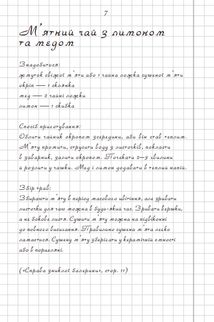 7
М'ятний чай з лимоном
та медом
Знадобиться:
жмуток свіжої м'яти або 1 чайна ложка сушеної м'яти
окріп — 1 склянка
мед — 2 чайні ложки
лимон — 1 скибка
Спосіб приготування:
Облити чайник окропом зсередини, аби він став теплим.
М'яту промити, струсити воду з листочків, покласти
в заварник, залити окропом. Почекати 3–5 хвилин
и розлити у чашки. Мед і лимон додавати в теплий напій.
Збір трав:
Збирають м'яту в період масового цвітіння, але зривати
листочки для чаю можна в будь-який час. Зривати вершки,
а не бокове листя. Сушити м'яту можна на підвіконні
до повного висихання. Правильно сушена м'ята легко
ламається. Сушену м'яту зберігати у керамічній ємності
або в порцеляні.
(«Справа зниклої балерини», стор. 11)